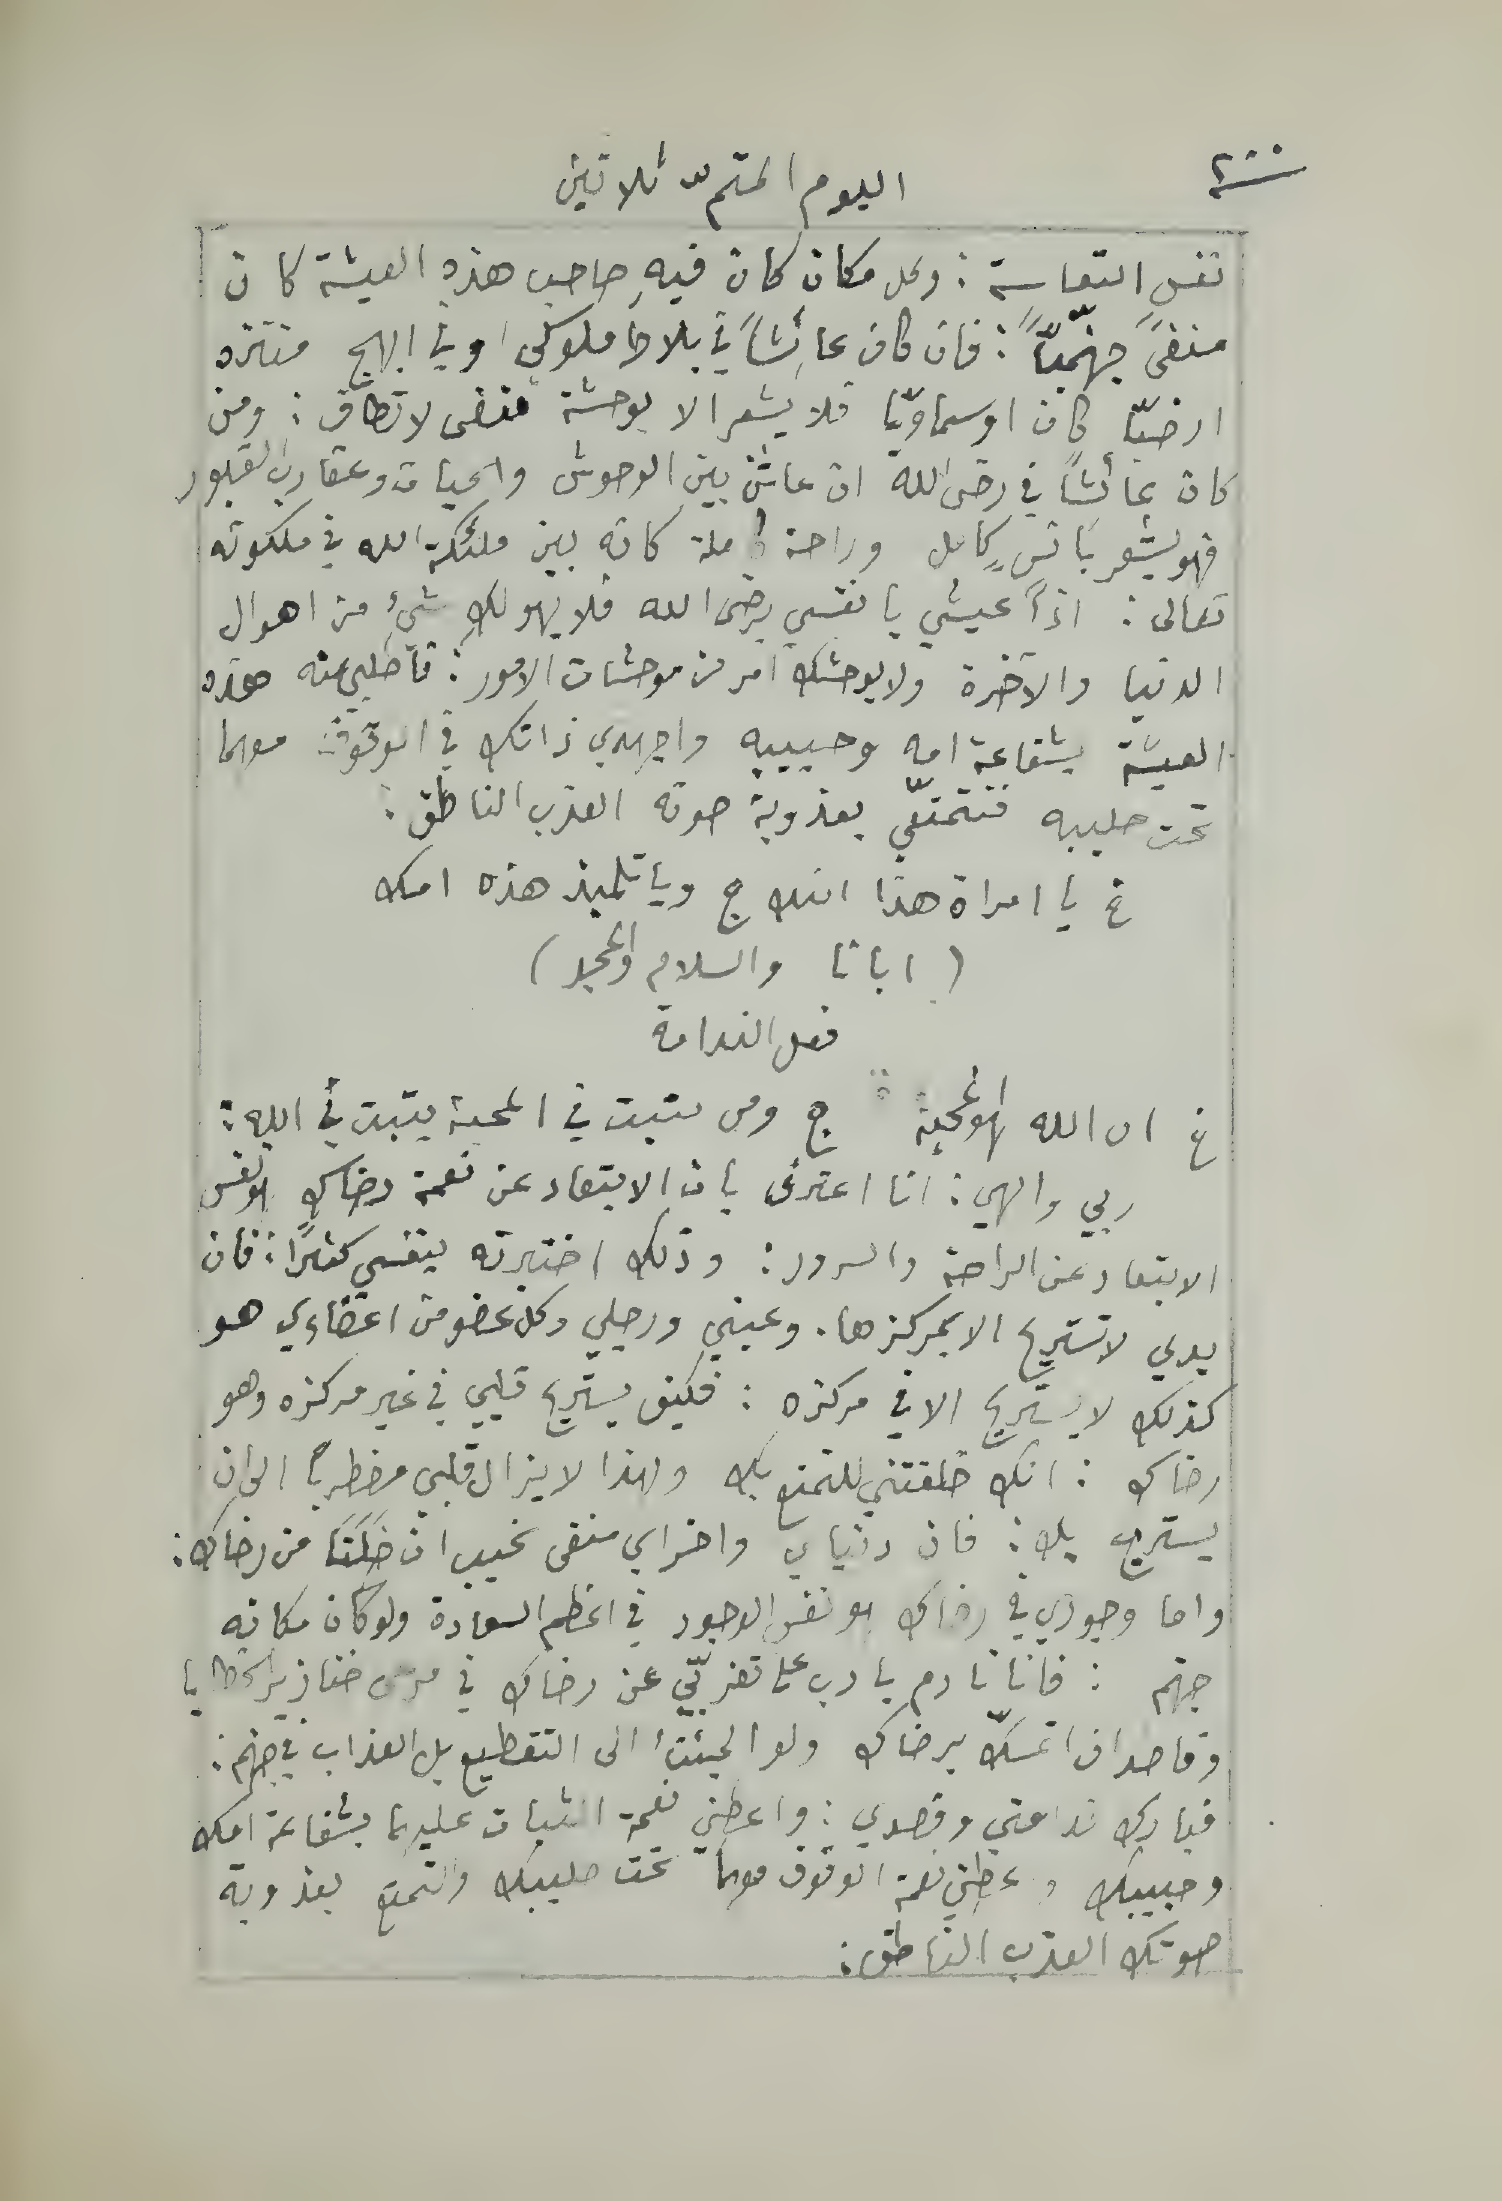 ٢٠٠
اليوم المتمّ ثلاثين
نفس التعاسة : وكل مكان كان فيهِ صاحب هذه العيشة كان
منفىً جهنّميّاً : فان كان عائشاً في بلاط ملوكي او في ابهج منتزه
ارضيّا كان او سماويّا فلا يشعر الا بوحشة منفى لا تطاق : ومن
كان عائشاً في رضى الله ان عاش بين الوحوش والحيات وعقارب القبور
فهو يشعر بانسٍ كامل وراحة كاملة كانه بين ملئكة الله في ملكوته
تعالى : اذاً عيشي يا نفسي برضى الله فلا يهولكِ شيءٌ من اهوال
الدنيا والآخرة ولا يوحشك امر من موحشات الامور : فاطلبي منه هذه
العيشة بشفاعة امه وحبيبه واجهدي ذاتك في الوقوف معهما
تحت صليبه فتتمتّعي بعذوبة صوته العذب الناطق :
غ يا امراة هذا ابنك ج ويا تلميذ هذه امك
( ابانا والسلام والمجد )
فعل الندامة
غ ان الله لهو المحبة ج ومن يثبت في المحبة يثبت في الله :
ربي والهي : انا اعترف بان الابتعاد عن نعمة رضاك هو نفس
الابتعاد عن الراحة والسرور : وذلك اختبرته بنفسي كثيرًا : فان
يدي لا تستريح الا بمركزها . وعيني ورجلي وكل عضو من اعضاءي هو
كذلك لا يستريح الا في مركزه : فكيف يستريح قلبي في غير مركزه وهو
رضاك : انك خلقتني للتمتع بك ولهذا لا يزال قلبي مضطرباً الى ان
يستريح بك : فان دنياي واخراي منفى نحيب ان خَلَتَا من رضاك :
واما وجودي في رضاك هو نفس الوجود في اعظم السعادة ولو كان مكانه
جهنم : فانا نادم يا رب على تغرّبي عن رضاك في مرعى خنازير الخطايا
وقاصد ان اتمسّك برضاك ولو الجئتُ الى التقطيع بل العذاب في جهنم :
فبارك ندامتي وقصدي : واعطني نعمة الثبات عليهما بشفاعة امك
وحبيبك واعطني نعمة الوقوف معهما تحت صليبك والتمتع بعذوبة
صوتك العذب الناطق :